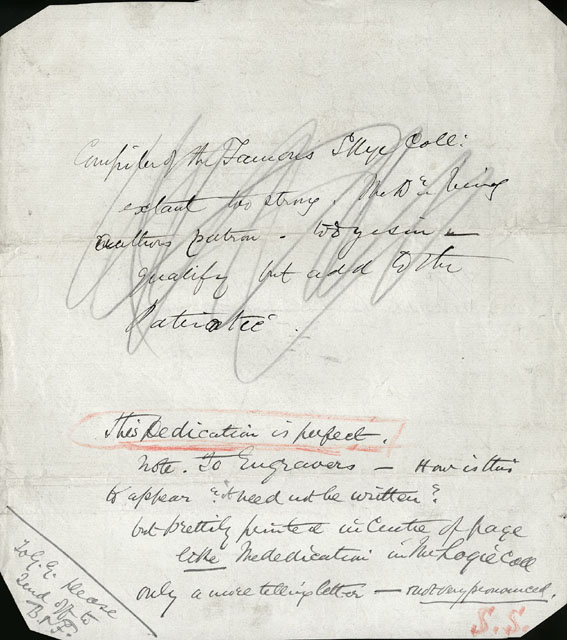 Compiler of the Famous Skye Coll:
extant too strong. McDr being
authors patron -
qualify but add to the
Patriotic.
This Dedication is perfect.
Note. To Engravers — How is this
to appear "it need not be written".
but prettily printed in Centre of page
like the dedication in McLogie Coll
only a more telling letter — not very pronounced.
S.S.
To G. G. please
send off to